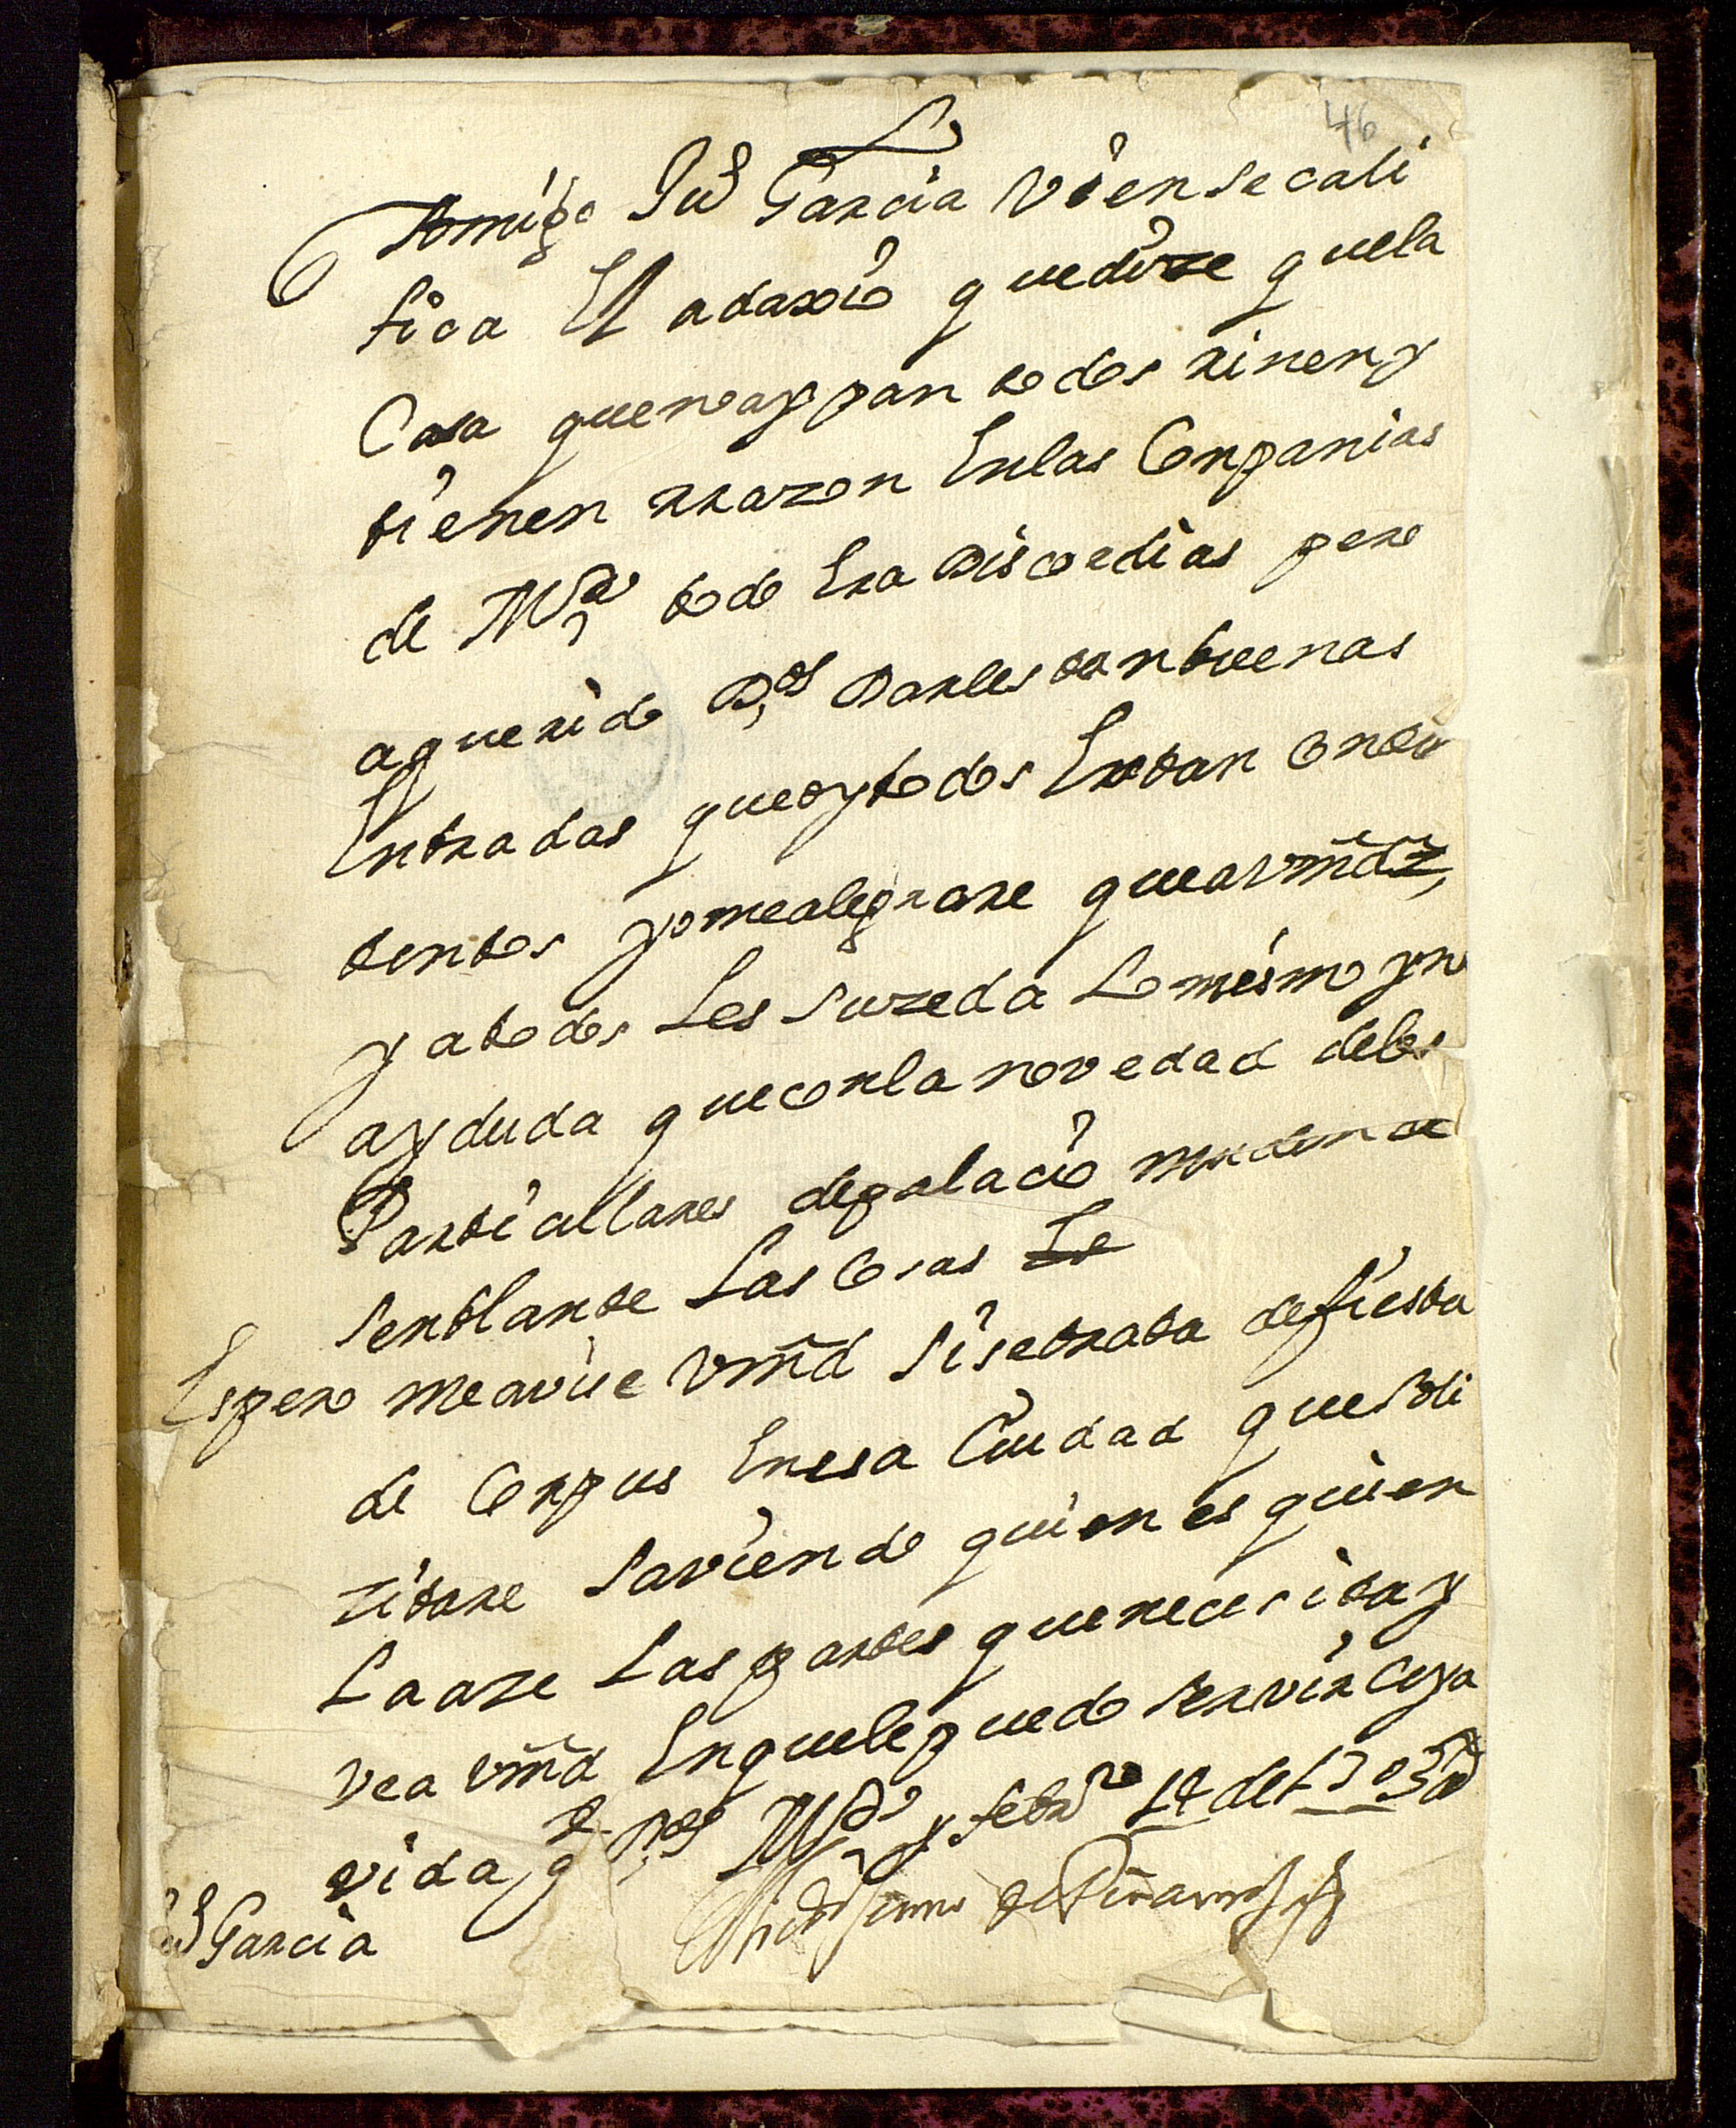 46
Amigo Ju.º Garcia vien se cali
fica El adaxio que dize quela
Casa que no ay pan todos rinen y
tienen rrazon En las Conpanias
de M.d todo Era Discordias pero
a querido D.s Darles tan buenas
Entradas que oy todos Estan Con
tentos yo me alegrare que a vmd
y a todos Les suzeda Lo mismo y no
ay duda que con la novedad de los
Particulares de palacio mudan de
senblante Las Cosas
Espero me avise vmd si se trata de fiesta
de Corpus En esa Ciudad que soli
zitare saviendo quien es quien
La aze Las partes que necesita y
vea vmd En que le puedo servir Cuya
vida g.e D.s M.d y febr.º 14 de 1703 a.s
de Pinarroja
Ju.º Garcia